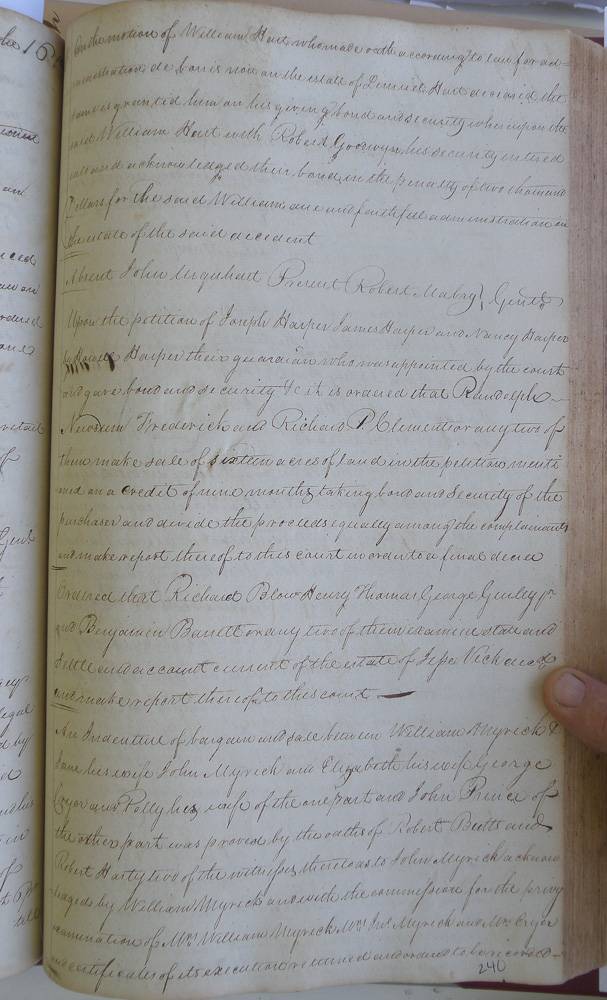 On the motion of William Hart, who made oath according to law for ad=
ministration de bonis non on the estate of Lemuel Hart deceased the
same is granted him on his giving bond and security whereupon the
said William Hart with Robert Goodwyn his security entered
into and acknowledged their bond in the penalty of two thousand
Dollars for the said Williams due and faithful administration on
the estate of the said decedent
Absent John Urquhart Present Robert Mabry, Gent
Upon the petition of Joseph Harper James Harper and Nancy Harper
by Harper their guardian who was appointed by the court
and gave bond and security &c it is ordered that Randolph
Newsum Frederick and Richard P. Clements or any two of
them make sale of sixteen acres of land in the petition menti
oned on a credit of nine months taking bond and security of the
purchaser and divide the proceeds equally among the complainants
and make report thereof to this court in order to a final decree
Ordered that Richard Blow Henry Thomas George Gurley jr
and Benjamin Barrett or any two of them examine state and
Settle and account current of the estate of Jesse Vick decd
and make report thereof to this court
An Indenture of bargain and sale between William Myrick &
Jane his wife John Myrick and Elizabeth his wife George
Cryer and Polly his wife of the one part and John Prince of
the other part was proved by the oaths of Robert Butts and
Robert Harty two of the witnesses thereto as to John Myrick acknow
ledged by William Myrick and with the commission for the privy
examination of Mrs William Myrick Mrs Jno Myrick and Mrs Cryer
and certificates of its execution returned and ordered to be recorded
240